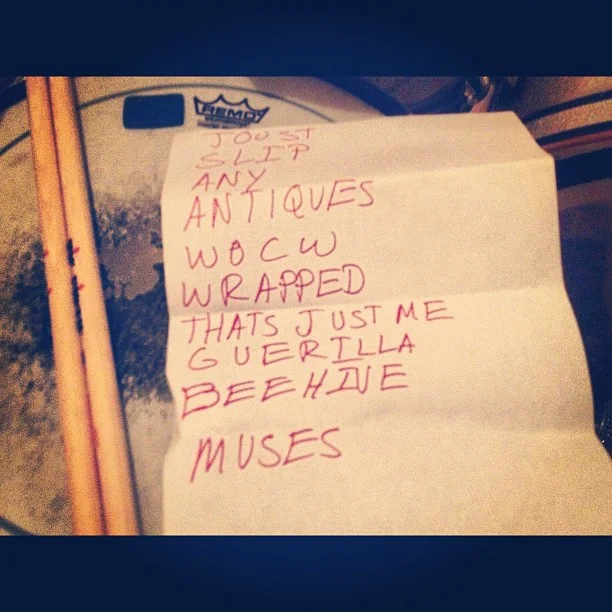 REMO
JOUST
SLIP
ANY
ANTIQUES
WOCW
WRAPPED
THATS JUST ME
GUERILLA
BEEHIVE
MUSES